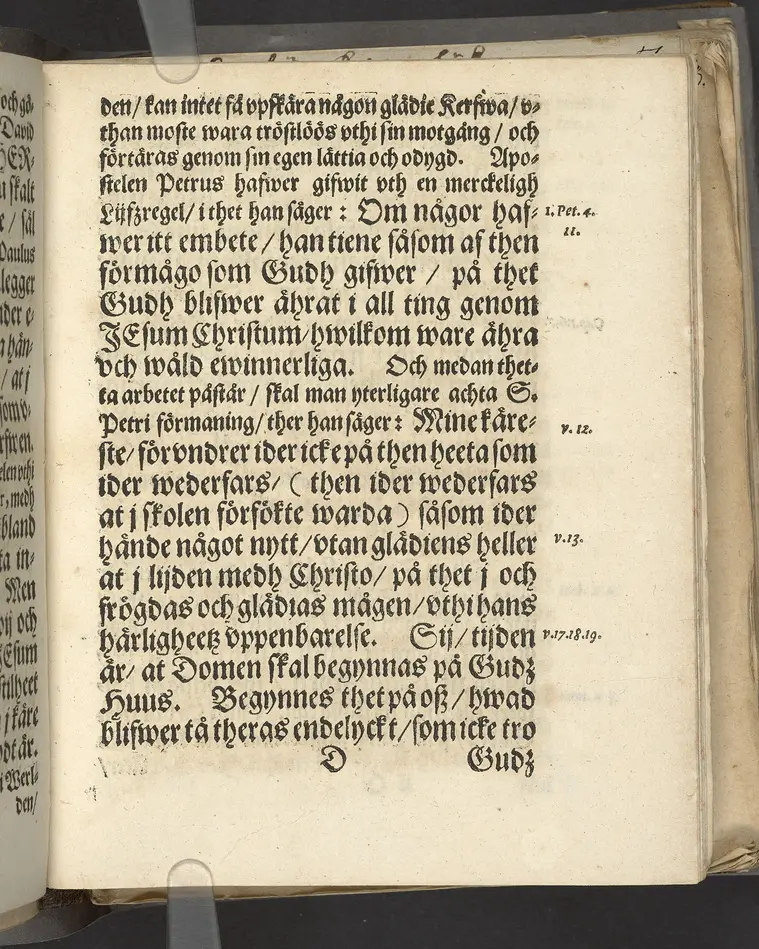 den/ kan intet få vpskära någon glädie Kerfwa/ v-
than moste wara tröstlöös vthi sin motgång / och
förtäras genom sin egen lättia och odygd. Apo-
stelen Petrus hafwer gifwit vth en merckeligh
Lijfzregel/ i thet han säger : Om någor haf- 1. Pet. 4.
wer itt embete / han tiene såsom af then 11.
förmågo som Gudh gifwer / på thet
Gudh blifwer ährat i all ting genom
JEsum Christum/ hwilkom ware ähra
och wåld ewinnerliga. Och medan thet-
ta arbetet påstår / skal man yterligare achta S.
Petri förmaning/ ther han säger : Mine käre- v. 12.
ste/ förvndrer ider icke på then heeta som
ider wederfars/ ( then ider wederfars
at j skolen försökte warda ) såsom ider
hände något nytt/ vtan glädiens heller v. 13.
at j lijden medh Christo/ på thet j och
frögdas och glädias mågen/ vthi hans
härligheetz vppenbarelse. Sij/ tijden v. 17. 18. 19.
är/ at Domen skal begynnas på Gudz
Huus. Begynnes thet på oß/ hwad
blifwer tå theras endelyckt/ som icke tro
D Gudz
och gå-
David
HER-
skalt
/ säl
Paulus
legger
/ at j
rfwen.
, medh
bland
ta in-
Men
och
JEsum
stilheet
j käre
är.
Werl-
den/